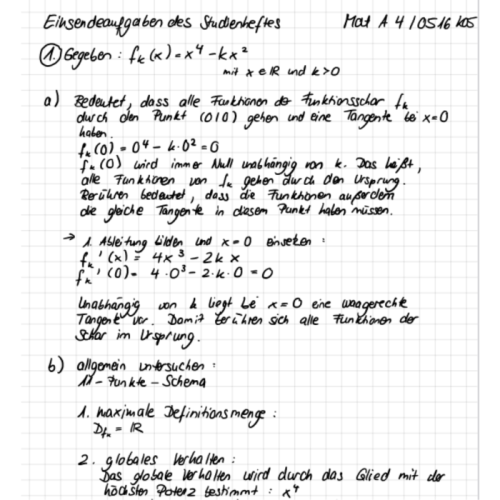 Einsendeaufgaben des Studienheftes Mat A 4 / 0516 K05
1. Gegeben : fk (x) = x⁴ - kx²
mit x ∈ ℝ und k > 0
a) Bedeutet, dass alle Funktionen der Funktionsschar fk
durch den Punkt (0|0) gehen und eine Tangente bei x=0
haben.
fk (0) = 0⁴ - k·0² = 0
fk (0) wird immer Null unabhängig von k. Das heißt,
alle Funktionen von fk gehen durch den Ursprung.
Berühren bedeutet, dass die Funktionen außerdem
die gleiche Tangente in diesem Punkt haben müssen.
→ 1. Ableitung bilden und x = 0 einsetzen :
fk' (x) = 4x³ - 2k x
fk' (0) = 4·0³ - 2·k·0 = 0
Unabhängig von k liegt bei x = 0 eine waagerechte
Tangente vor. Damit berühren sich alle Funktionen der
Schar im Ursprung.
b) allgemein untersuchen :
11 - Punkte - Schema
1. maximale Definitionsmenge :
Dfk = ℝ
2. globales Verhalten :
Das globale Verhalten wird durch das Glied mit der
höchsten Potenz bestimmt : x⁴